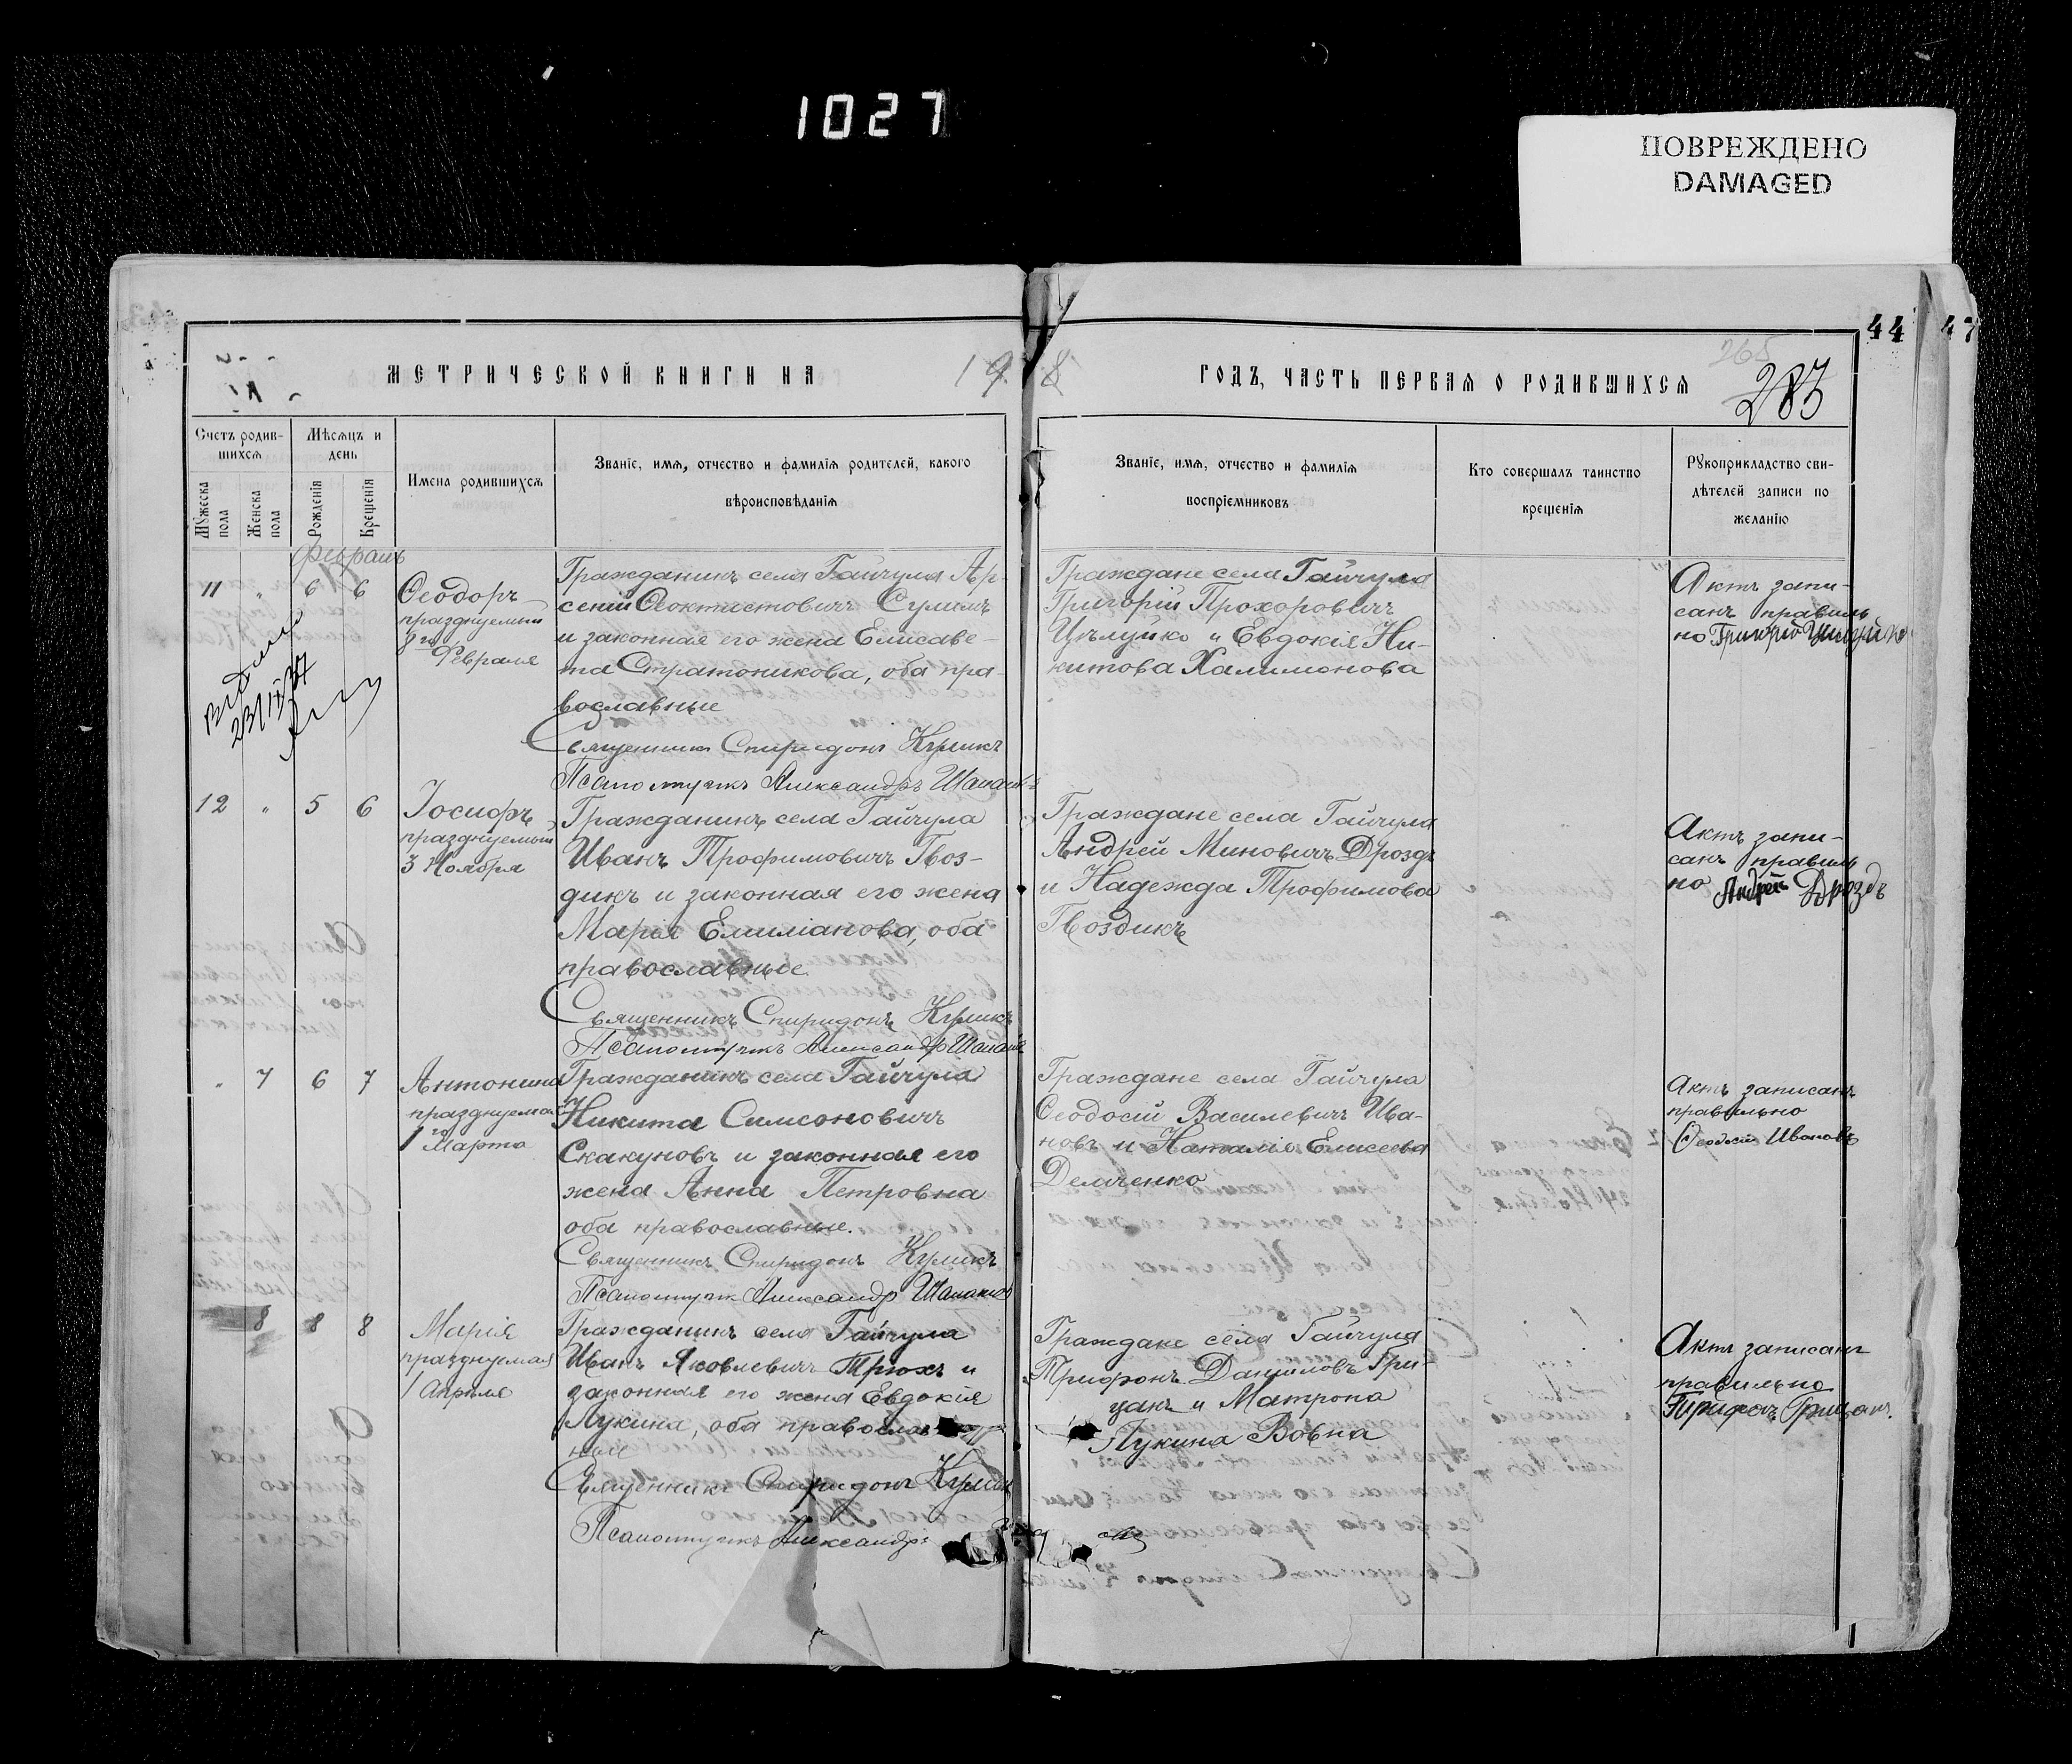 1027
ПОВРЕЖДЕНО
DAMAGED
44
47
МЕТРИЧЕСКОЙ КНИГИ НА 19 8 ГОДЪ, ЧАСТЬ ПЕРВАЯ О РОДИВШИХСЯ
265
Счетъ родив-
шихся
Мѣсяцъ и
день
Мужеска
пола
Женска
пола
Рожденія
Крещенія
Имена родившихся
Званіе, имя, отчество и фамилія родителей, какого
вѣроисповѣданія
Званіе, имя, отчество и фамилія
воспріемниковъ
Кто совершалъ таинство
крещенія
Рукоприкладство сви-
дѣтелей записи по
желанію
Февраль
11 " 6 6
Ѳеодоръ
празднуемый
8го Февраля
Гражданинъ села Гайчула Ар-
сеній Ѳеоктистовичъ Сулимъ
и законная его жена Елисаве-
та Стратоникова, оба пра-
вославные
Священникъ Спиридонъ Куликъ
Псаломщикъ Александръ
Граждане села Гайчула
Григорій Прохоровичъ
Цѣлуйко и Евдокія Ни-
китова Халимонова
Актъ запи-
санъ правиль
но Григорій Цилуйко
12 " 5 6
Іосифъ
празднуемый
3 Ноября
Гражданинъ села Гайчула
Иванъ Трофимовичъ Гвоз-
дикъ и законная его жена
Марія Емиліанова, оба
православные.
Священникъ Спиридонъ Куликъ
Псаломщикъ Александръ
Граждане села Гайчула
Андрей Миновичъ Дроздъ
и Надежда Трофимова
Гвоздикъ
Актъ запи-
санъ правиль
но Андрей Дроздъ
" 7 6 7
Антонина
празднуемая
1го Марта
Гражданинъ села Гайчула
Никита Симоновичъ
Скакуновъ и законная его
жена Анна Петровна
оба православные.
Священникъ Спиридонъ Куликъ
Псаломщикъ Александръ
Граждане села Гайчула
Ѳеодосій Василевичъ Ива-
новъ и Наталія Елисеева
Демченко
Актъ записанъ
правильно
Ѳеодосій Ивановъ
8 8 8
Марія
празднуемая
1 Апреля
Гражданинъ села Гайчула
Иванъ Яковлевичъ Трюхъ и
законная его жена Евдокія
Лукина, оба православ
ные
Священникъ Спиридонъ Куликъ
Псаломщикъ Александръ
Граждане села Гайчула
Трифонъ Даниловъ Гри-
цакъ и Матрона
Лукина Вовна
Актъ записанъ
правильно
Трифонъ Грицакъ.